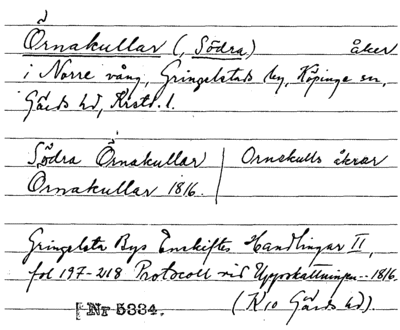 Örnakullar (, Södra) åker
i Norre vång, Gringelstads by, Köpinge sn,
Gärds hd, Krist. l.
Södra Örnakullar | Ornakulls åkrar
Ornakullar 1816.
Gringelsta Bys Enskiftes Handlingar II,
fol 197-218 Protocoll vid Uppskattningen -- 1816.
(K10 Gärds hd).
Nr 5334.